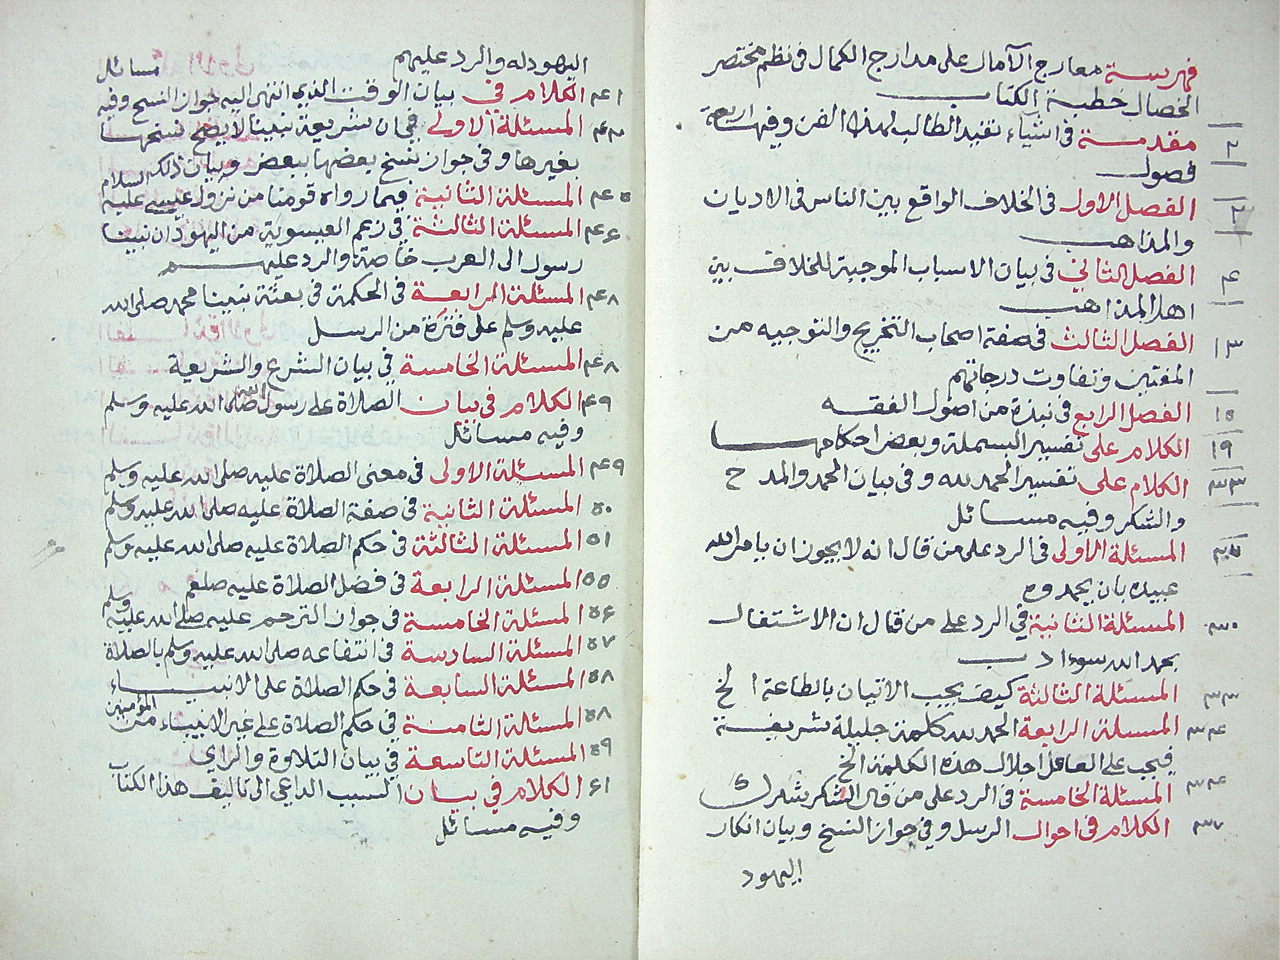 فهرسة معارج الآمال على مدارج الكمال في نظم مختصر
الخصال خطبة الكتاب
٢ مقدمة في اشياء تفيد الطالب لهذا الفن وفيها اربعة
فصول
٣ الفصل الاول في الخلاف الواقع بين الناس في الاديان
والمذاهب
٤ الفصل الثاني في بيان الاسباب الموجبة للخلاف بين
اهل المذاهب
١٣ الفصل الثالث في صفة اصحاب التخريج والتوجيه من
المفتين وتفاوت درجاتهم
١٥ الفصل الرابع في نبذة من اصول الفقه
١٩ الكلام على تفسير البسملة وبعض احكامها
٢٣ الكلام على تفسير الحمد لله وفي بيان الحمد والمدح
والشكر وفيه مسائل
المسئلة الاولى في الرد على من قال انه لا يجوز ان يامر الله
عبيده بان يحمدوه
٣٠ المسئلة الثانية في الرد على من قال ان الاشتغال
بحمد الله سوء ادب
٣٣ المسئلة الثالثة كيف يجب الاتيان بالطاعة الخ
٣٤ المسئلة الرابعة الحمد لله كلمة جليلة شريفة
فيجب على العاقل اجلال هذه الكلمة الخ
٣٤ المسئلة الخامسة في الرد على من قال الشكر شرك
٣٧ الكلام في احوال الرسل وفي جواز النسخ وبيان انكار
اليهود
اليهود له والرد عليهم
٤١ الكلام في بيان الوقت الذي انتهى اليه جواز النسخ وفيه مسائل
٤٣ المسئلة الاولى في ان شريعة نبينا لا يصح نسخها
بغيرها وفي جواز نسخ بعضها ببعض وبيان ذلك
٤٥ المسئلة الثانية فيما رواه قومنا من نزول عيسى عليه السلام
٤٦ المسئلة الثالثة في زعم العيسوية من اليهود ان نبينا
رسول الى العرب خاصة والرد عليهم
٤٨ المسئلة الرابعة في الحكمة في بعثة نبينا محمد صلى الله
عليه وسلم على فترة من الرسل
٤٨ المسئلة الخامسة في بيان الشرع والشريعة
٤٩ الكلام في بيان الصلاة على رسول الله صلى الله عليه وسلم
وفيه مسائل
٤٩ المسئلة الاولى في معنى الصلاة عليه صلى الله عليه وسلم
٥٠ المسئلة الثانية في صفة الصلاة عليه صلى الله عليه وسلم
٥١ المسئلة الثالثة في حكم الصلاة عليه صلى الله عليه وسلم
٥٥ المسئلة الرابعة في فضل الصلاة عليه صلعم
٥٦ المسئلة الخامسة في جواز الترحم عليه صلى الله عليه وسلم
٥٧ المسئلة السادسة في انتفاعه صلى الله عليه وسلم بالصلاة
٥٨ المسئلة السابعة في حكم الصلاة على الانبياء
٥٨ المسئلة الثامنة في حكم الصلاة على غير الانبياء من المؤمنين
٥٩ المسئلة التاسعة في بيان التلاوة والراي
٦١ الكلام في بيان السبب الداعي الى تاليف هذا الكتاب
وفيه مسائل